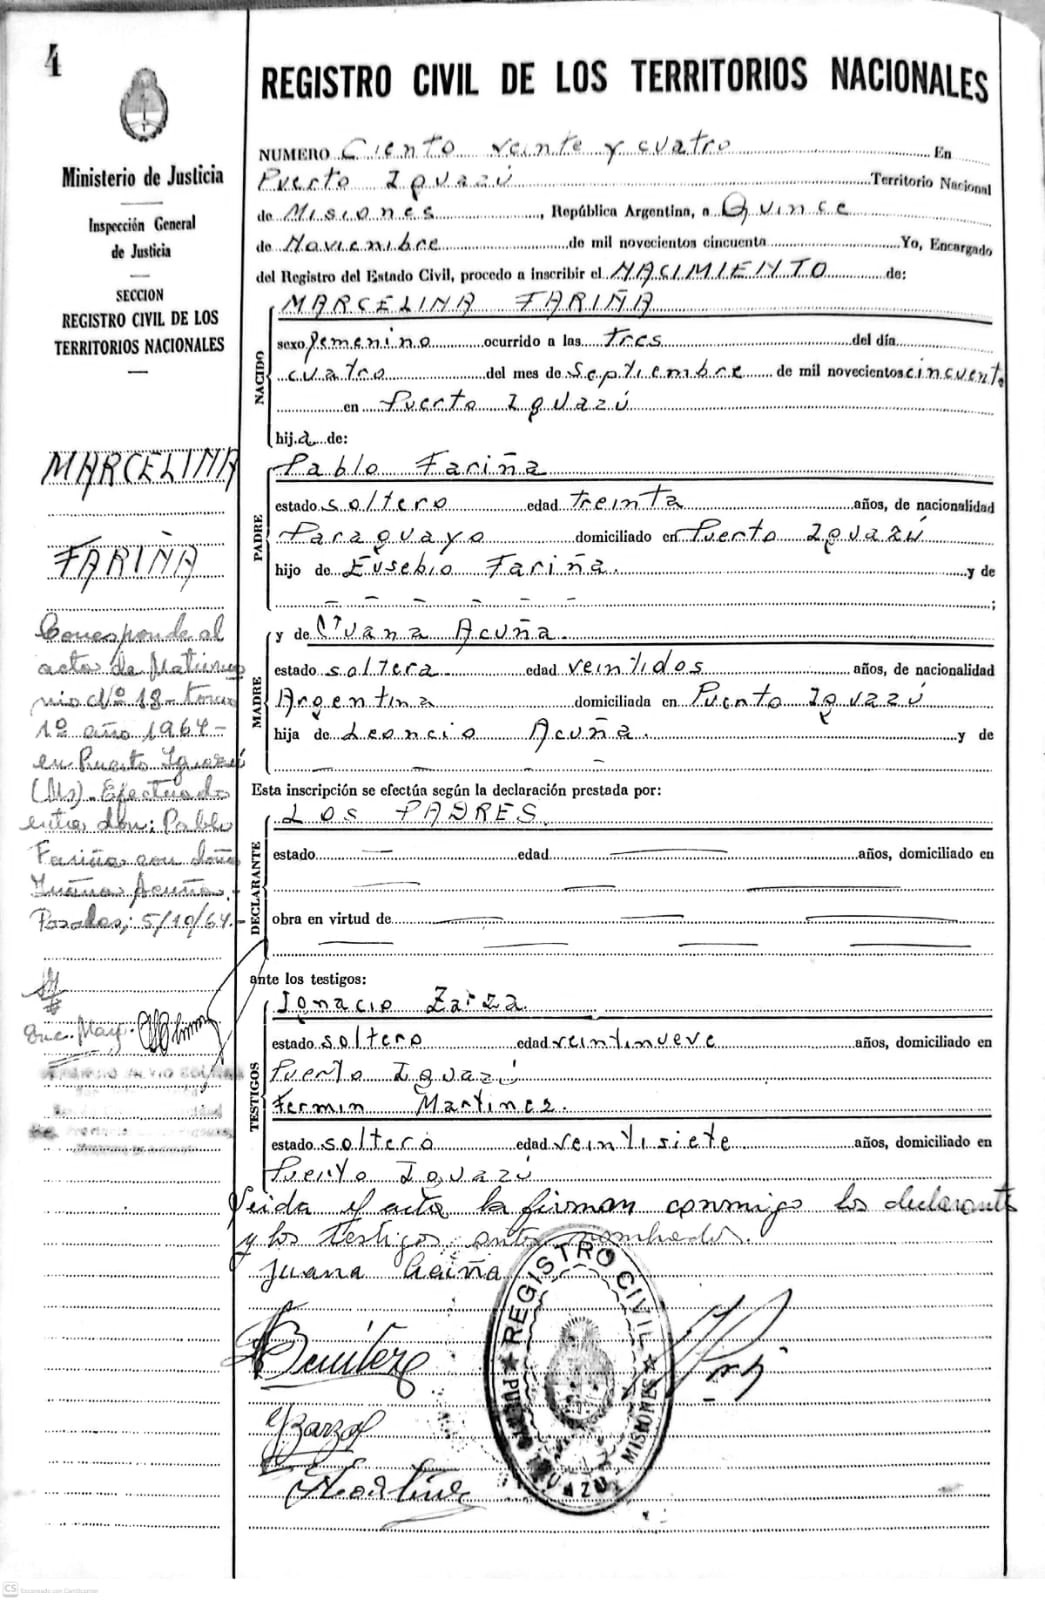 4
Ministerio de Justicia
Inspección General
de Justicia
SECCION
REGISTRO CIVIL DE LOS
TERRITORIOS NACIONALES
MARCELINA
FARIÑA
Corresponde al
acta de Matrimo
nio Nº 18 - tomo
1º año 1964 -
en Puerto Iguazú
(Ms). Efectuado
entre don: Pablo
Fariña con doña
Juana Acuña. -
Posadas, 5/10/64. -
REGISTRO CIVIL DE LOS TERRITORIOS NACIONALES
NUMERO Ciento veinte y cuatro En
Puerto Iguazú Territorio Nacional
de Misiones, República Argentina, a Quince
de Noviembre de mil novecientos cincuenta Yo, Encargado
del Registro del Estado Civil, procedo a inscribir el NACIMIENTO de:
NACIDO
MARCELINA FARIÑA
sexo femenino ocurrido a las tres del día
cuatro del mes de Septiembre de mil novecientos cincuenta
en Puerto Iguazú
hija de:
PADRE
Pablo Fariña
estado soltero edad treinta años, de nacionalidad
Paraguayo domiciliado en Puerto Iguazú
hijo de Eusebio Fariña. y de
;
MADRE
y de Juana Acuña.
estado soltera edad veintidos años, de nacionalidad
Argentina domiciliada en Puerto Iguazú
hija de Leoncio Acuña. y de
Esta inscripción se efectúa según la declaración prestada por:
DECLARANTE
LOS PADRES.
estado edad años, domiciliado en
obra en virtud de
ante los testigos:
TESTIGOS
Ignacio Zarza.
estado soltero edad veintinueve años, domiciliado en
Puerto Iguazú
Fermin Martinez.
estado soltero edad veintisiete años, domiciliado en
Puerto Iguazú
Leida el acta la firman conmigo los declarantes
y los testigos antes nombrados.
Juana Acuña
REGISTRO CIVIL
MISIONES
CS Escaneado con CamScanner